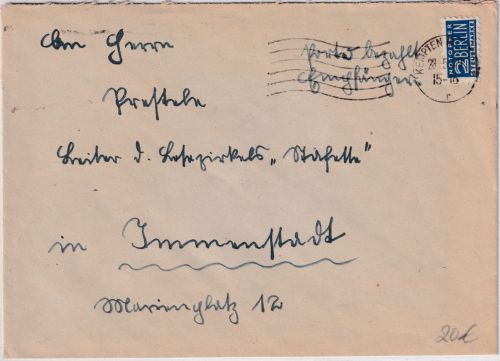 An Herrn
Porto bezahlt
Empfänger
Prestele
Leiter d. Lesezirkels „Stafette"
in Immenstadt
Marienplatz 12
KEMPTEN
15-16
r
NOTOPFER
2 BERLIN
STEUERMARKE
20€